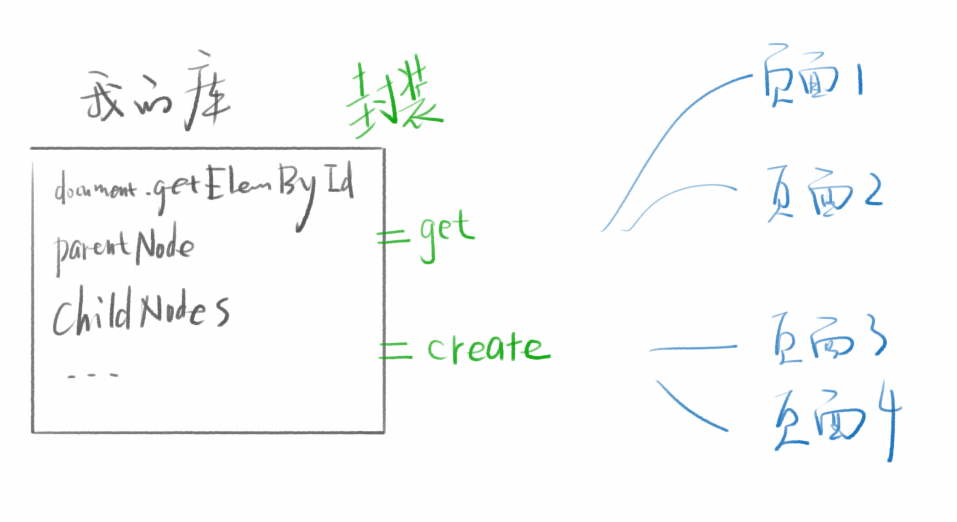 我的库
封装
document.getElemById
parentNode
childNodes
...
get
create
页面1
页面2
页面3
页面4